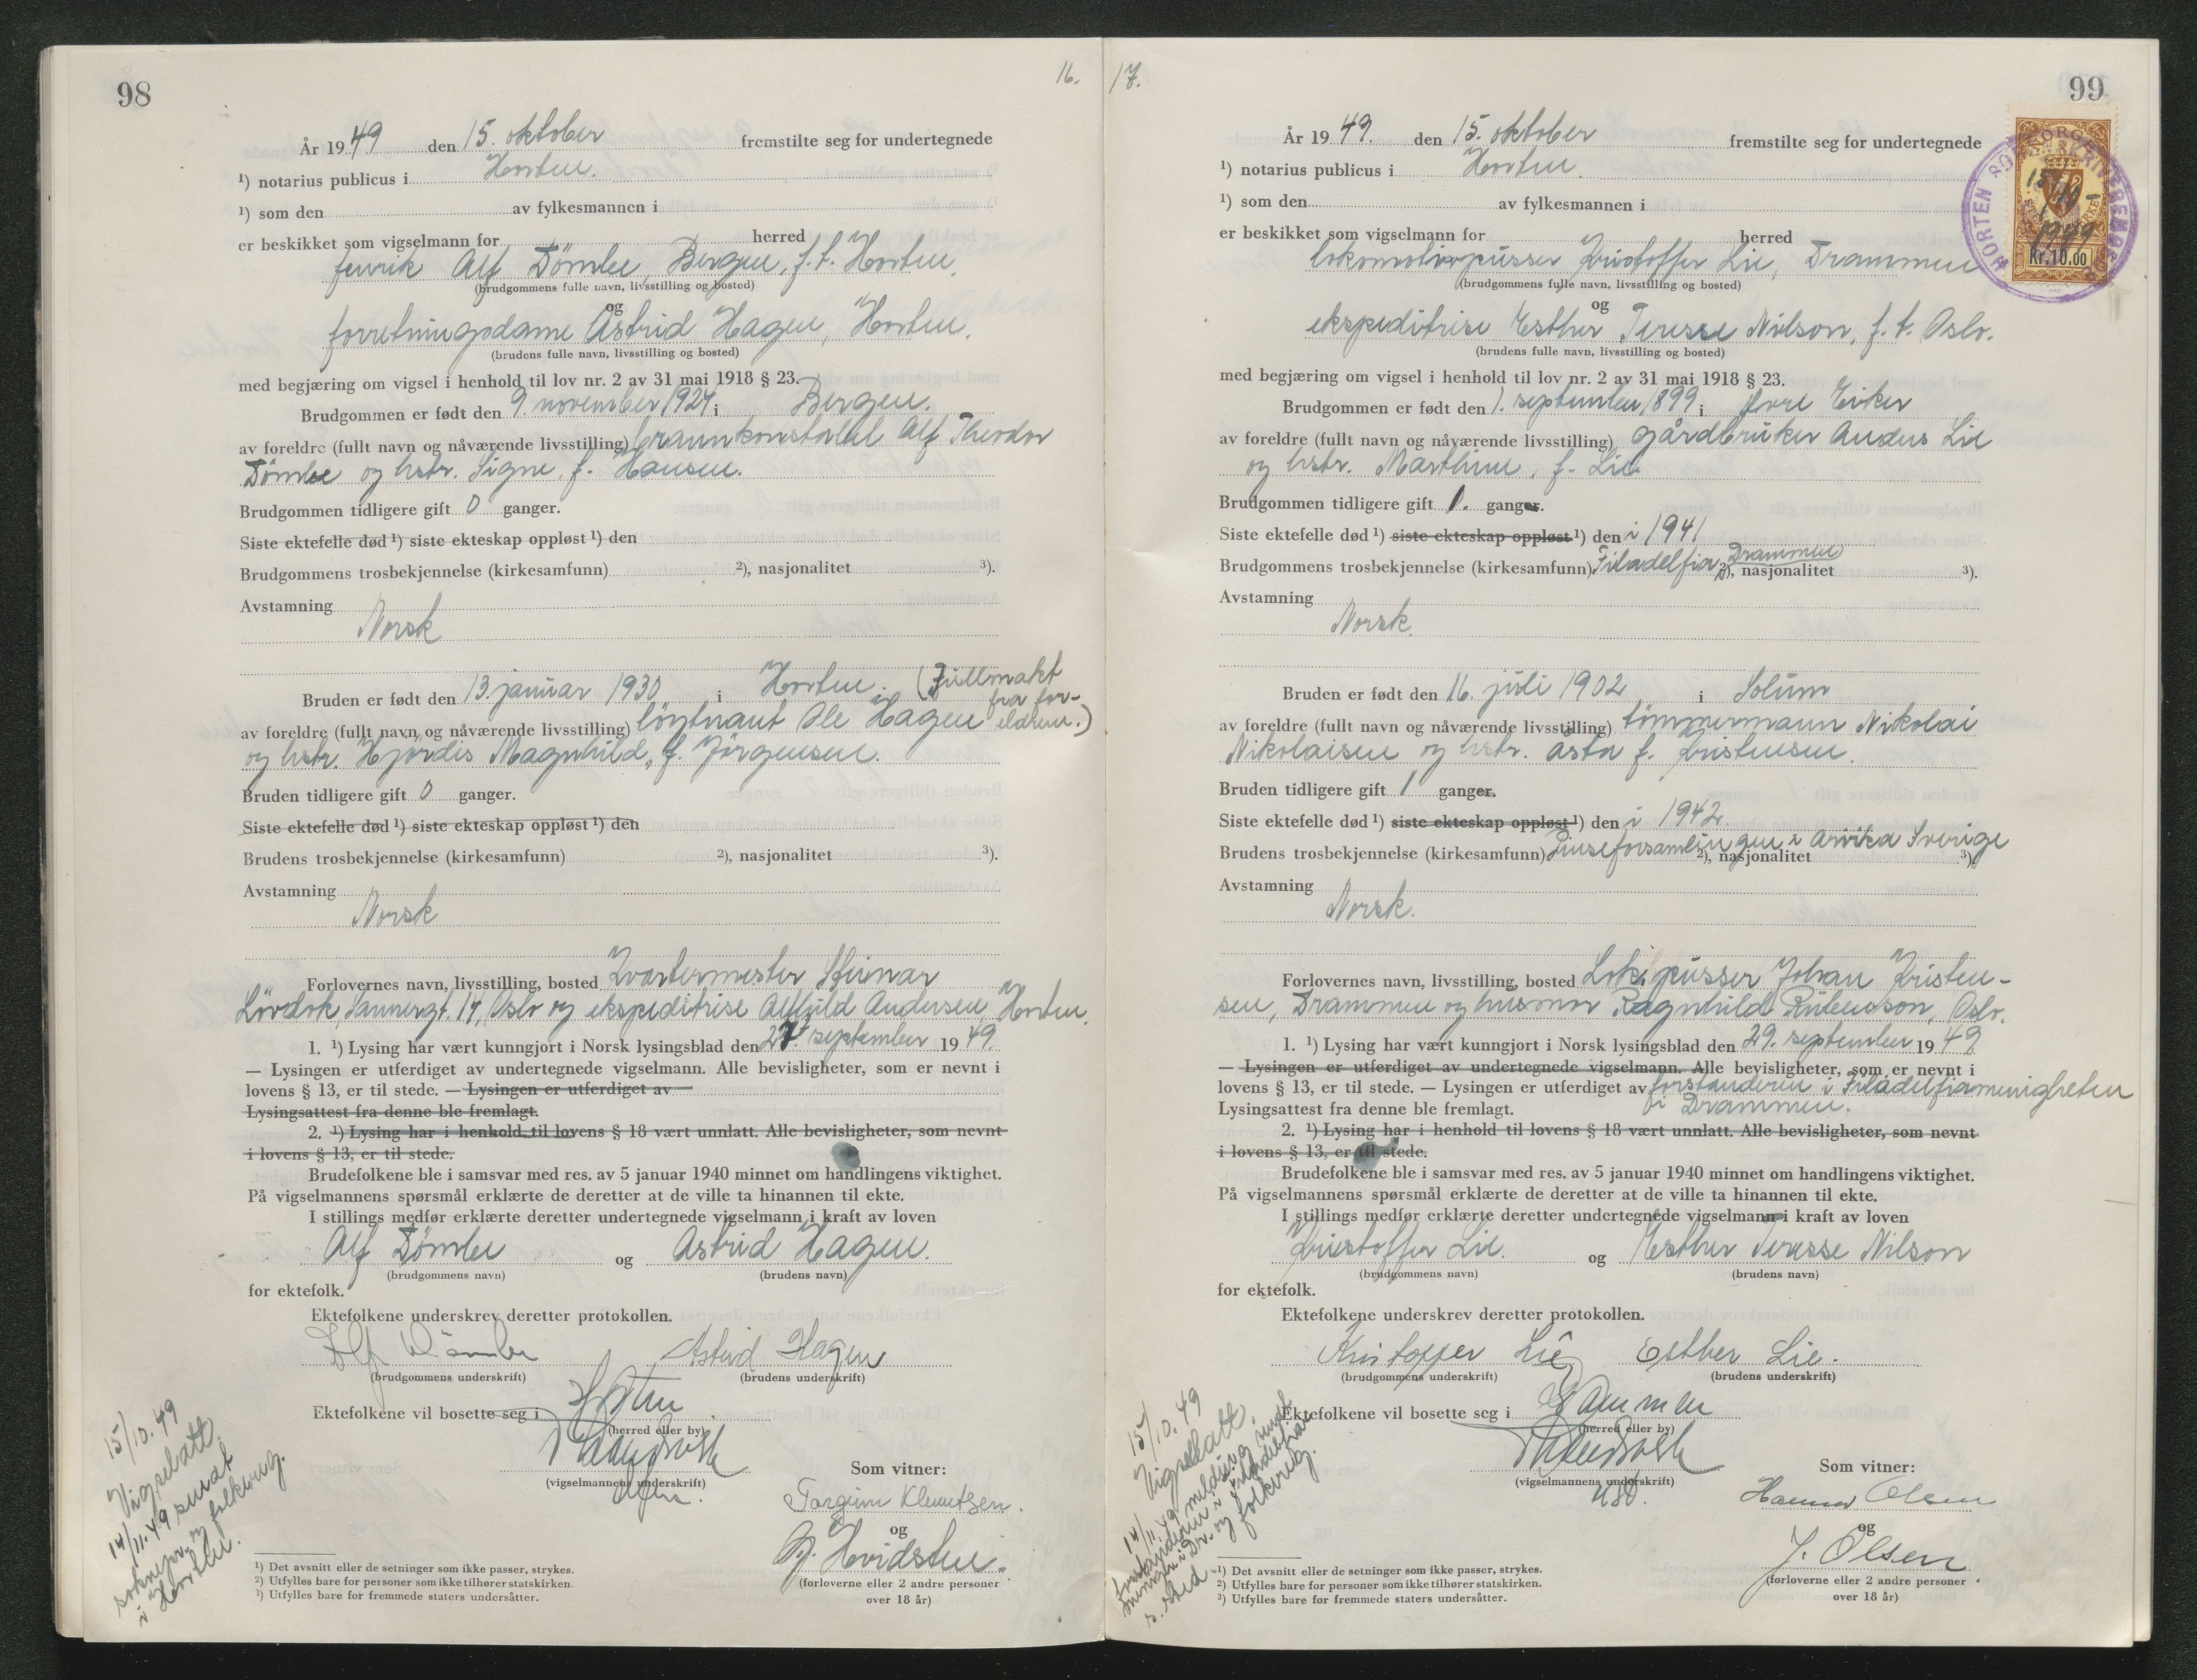 98
16.
År 1949 den 15. oktober fremstilte seg for undertegnede
¹) notarius publicus i Horten.
¹) som den av fylkesmannen i
er beskikket som vigselmann for herred
fenrik Alf Dömbe, Bergen, f.t. Horten.
(brudgommens fulle navn, livsstilling og bosted)
og
forretningsdame Astrid Hagen, Horten.
(brudens fulle navn, livsstilling og bosted)
med begjæring om vigsel i henhold til lov nr. 2 av 31 mai 1918 § 23.
Brudgommen er født den 9. november 1924 i Bergen.
av foreldre (fullt navn og nåværende livsstilling) brannkonstabel Alf Theodor
Dömbe og hstr. Signe, f. Hansen.
Brudgommen tidligere gift 0 ganger.
Siste ektefelle død ¹) siste ekteskap oppløst ¹) den
Brudgommens trosbekjennelse (kirkesamfunn) ²), nasjonalitet ³).
Avstamning
Norsk
Bruden er født den 13. januar 1930 i Horten. (Fullmakt
fra for-
av foreldre (fullt navn og nåværende livsstilling) löytnant Ole Hagen eldrene.)
og hstr. Hjördis Magnhild, f. Jörgensen.
Bruden tidligere gift 0 ganger.
Siste ektefelle død ¹) siste ekteskap oppløst ¹) den
Brudens trosbekjennelse (kirkesamfunn) ²), nasjonalitet ³).
Avstamning
Norsk
Forlovernes navn, livsstilling, bosted Kvartermester Steinar
Lövdok, Sannergt. 14, Oslo og ekspeditrise Alfhild Andersen, Horten.
1. ¹) Lysing har vært kunngjort i Norsk lysingsblad den 27. september 1949.
— Lysingen er utferdiget av undertegnede vigselmann. Alle bevisligheter, som er nevnt i
lovens § 13, er til stede. — Lysingen er utferdiget av
Lysingsattest fra denne ble fremlagt.
2. ¹) Lysing har i henhold til lovens § 18 vært unnlatt. Alle bevisligheter, som nevnt
i lovens § 13, er til stede.
Brudefolkene ble i samsvar med res. av 5 januar 1940 minnet om handlingens viktighet.
På vigselmannens spørsmål erklærte de deretter at de ville ta hinannen til ekte.
I stillings medfør erklærte deretter undertegnede vigselmann i kraft av loven
Alf Dömbe og Astrid Hagen.
(brudgommens navn) (brudens navn)
for ektefolk.
Ektefolkene underskrev deretter protokollen.
Alf Dömbe Astrid Hagen
(brudgommens underskrift) (brudens underskrift)
Ektefolkene vil bosette seg i Horten
(herred eller by)
(vigselmannens underskrift)
Som vitner:
Torgunn Klemetsen.
og
Hvidsten.
(forloverne eller 2 andre personer
over 18 år)
15/10.49
Vigselatt.
14/11.49 sendt
soknepr. og folkereg.
i Horten.
¹) Det avsnitt eller de setninger som ikke passer, strykes.
²) Utfylles bare for personer som ikke tilhører statskirken.
³) Utfylles bare for fremmede staters undersåtter.
17.
99
År 1949. den 15. oktober fremstilte seg for undertegnede
¹) notarius publicus i Horten.
¹) som den av fylkesmannen i
er beskikket som vigselmann for herred
HORTEN
15/10-
1949
Kr.10.00
lokomotivpusser Kristoffer Lie, Drammen
(brudgommens fulle navn, livsstilling og bosted)
og
ekspeditrise Esther Terese Nilson, f.t. Oslo.
(brudens fulle navn, livsstilling og bosted)
med begjæring om vigsel i henhold til lov nr. 2 av 31 mai 1918 § 23.
Brudgommen er født den 1. september 1899 i Øvre Eiker
av foreldre (fullt navn og nåværende livsstilling) gårdbruker Anders Lie
og hstr. Marthine, f. Lie
Brudgommen tidligere gift 1. ganger.
Siste ektefelle død ¹) siste ekteskap oppløst ¹) den i 1941
Brudgommens trosbekjennelse (kirkesamfunn) Filadelfia, Drammen ²), nasjonalitet ³).
Avstamning
Norsk.
Bruden er født den 16. juli 1902 i Solum
av foreldre (fullt navn og nåværende livsstilling) tömmermann Nikolai
Nikolaisen og hstr. Åsta f. Kristensen.
Bruden tidligere gift 1 ganger.
Siste ektefelle død ¹) siste ekteskap oppløst ¹) den i 1942.
Brudens trosbekjennelse (kirkesamfunn) Pinseforsamlingen i Arvika Sverige ²), nasjonalitet ³).
Avstamning
Norsk.
Forlovernes navn, livsstilling, bosted Lok.pusser Johan Kristen-
sen, Drammen og husmor Ragnhild Rubenson, Oslo.
1. ¹) Lysing har vært kunngjort i Norsk lysingsblad den 29. september 1949
— Lysingen er utferdiget av undertegnede vigselmann. Alle bevisligheter, som er nevnt i
lovens § 13, er til stede. — Lysingen er utferdiget av forstanderen i Filadelfiamenigheten
Lysingsattest fra denne ble fremlagt. i Drammen.
2. ¹) Lysing har i henhold til lovens § 18 vært unnlatt. Alle bevisligheter, som nevnt
i lovens § 13, er til stede.
Brudefolkene ble i samsvar med res. av 5 januar 1940 minnet om handlingens viktighet.
På vigselmannens spørsmål erklærte de deretter at de ville ta hinannen til ekte.
I stillings medfør erklærte deretter undertegnede vigselmann i kraft av loven
Kristoffer Lie. og Esther Teresse Nilson
(brudgommens navn) (brudens navn)
for ektefolk.
Ektefolkene underskrev deretter protokollen.
Kristoffer Lie Esther Lie.
(brudgommens underskrift) (brudens underskrift)
Ektefolkene vil bosette seg i Drammen
(herred eller by)
(vigselmannens underskrift)
Som vitner:
Olsen
og
J. Olsen
(forloverne eller 2 andre personer
over 18 år)
15/10.49
Vigselatt.
14/11.49 melding sendt
forstanderen i Filadelfia
menigh. i Dr. og folkereg.
s. sted
¹) Det avsnitt eller de setninger som ikke passer, strykes.
²) Utfylles bare for personer som ikke tilhører statskirken.
³) Utfylles bare for fremmede staters undersåtter.